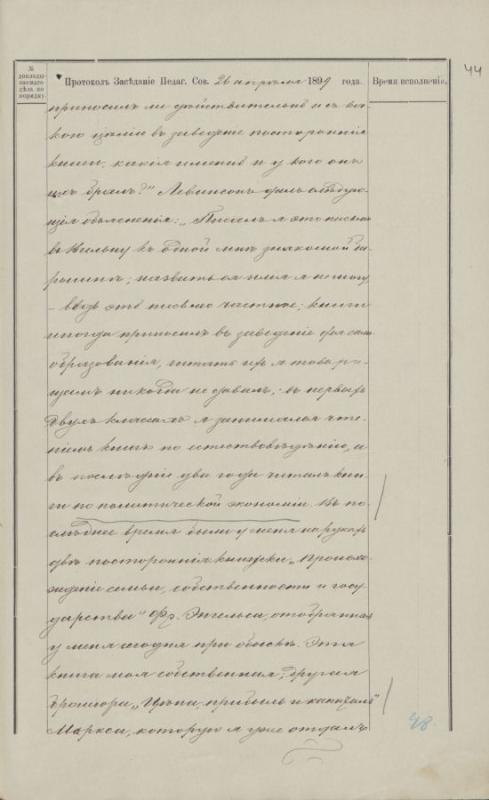 44
№ докладываемаго дѣла по порядку.
Протоколъ Засѣданіе Педаг. Сов. 26 апрѣля 1899 года.
Время исполненія.
приносилъ ли дѣйствительно и съ ка-
кою цѣлію въ заведеніе постороннія
книги, какія именно и у кого онъ
ихъ бралъ?" Левинсонъ далъ слѣдую-
щія объясненія: „Писалъ я это письмо
въ Вильну къ одной мнѣ знакомой ба-
рышнѣ; назвать ея имя я не могу
– вѣдь это письмо частное; книги
иногда приносилъ въ заведеніе для само
образованія, читать ихъ я товари-
щамъ никогда не давалъ; въ первыхъ
двухъ классахъ я занимался чте-
ніемъ книгъ по естествовѣдѣнію, а
въ послѣдніе два года читалъ кни-
ги по политической экономіи. Въ по-
слѣднее время были у меня на рукахъ
двѣ постороннія книжки „Происхо-
жденіе семьи, собственности и госу-
дарства" Фр. Энгельса, отобранная
у меня сегодня при обыскѣ. Эта
книга моя собственная; другая
брошюра „Цѣна, прибыль и капиталъ"
Маркса, которую я уже отдалъ
48.